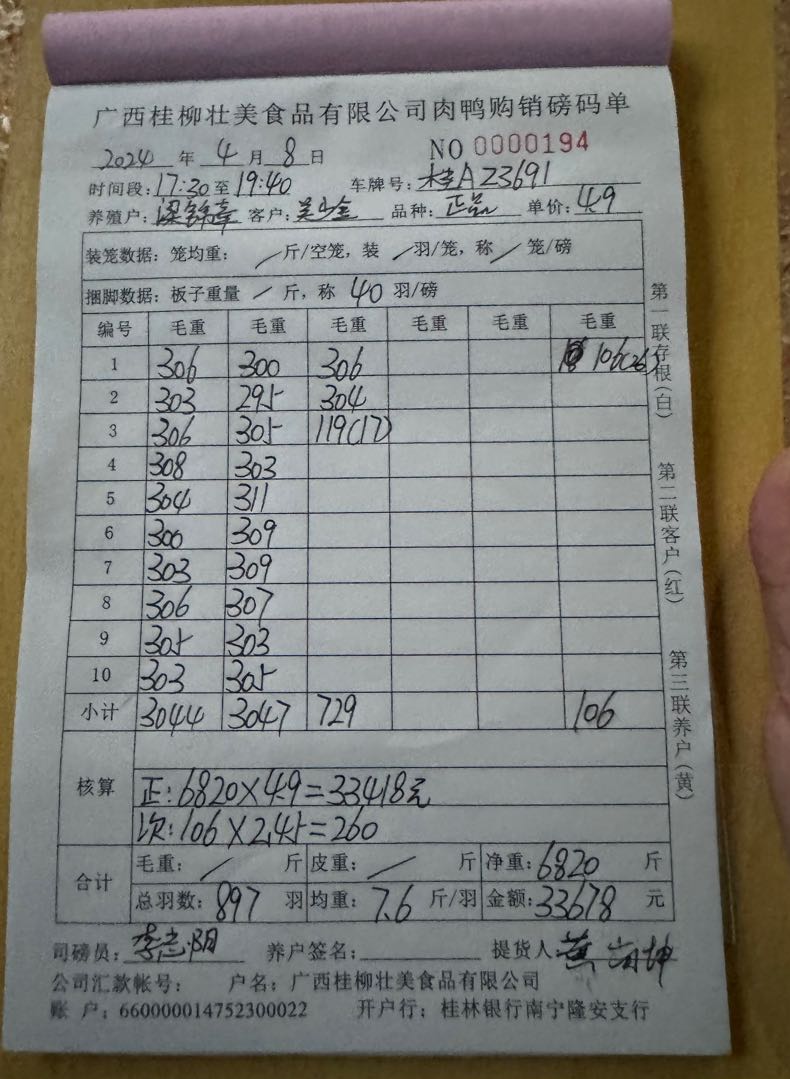 广西桂柳壮美食品有限公司肉鸭购销磅码单
2024 年 4 月 8 日 NO 0000194
时间段:17:30至19:40 车牌号:桂AZ3691
养殖户: 客户: 品种:正品 单价:4.9
装笼数据:笼均重: / 斤/空笼,装 / 羽/笼,称 / 笼/磅
捆脚数据:板子重量 / 斤,称 40 羽/磅
编号 毛重 毛重 毛重 毛重 毛重 毛重
1 306 300 306 106(26)
2 303 295 304
3 306 305 119(17)
4 308 303
5 304 311
6 300 309
7 303 309
8 306 307
9 305 303
10 303 305
小计 3044 3047 729 106
核算
正:6820×4.9=33418元
次:106×2.45=260
合计
毛重: / 斤 皮重: / 斤 净重:6820 斤
总羽数:897 羽 均重:7.6 斤/羽 金额:33678 元
司磅员:李志阴 养户签名: 提货人
公司汇款帐号: 户名:广西桂柳壮美食品有限公司
账 户:660000014752300022 开户行:桂林银行南宁隆安支行
第一联存根(白)
第二联客户(红)
第三联养户(黄)